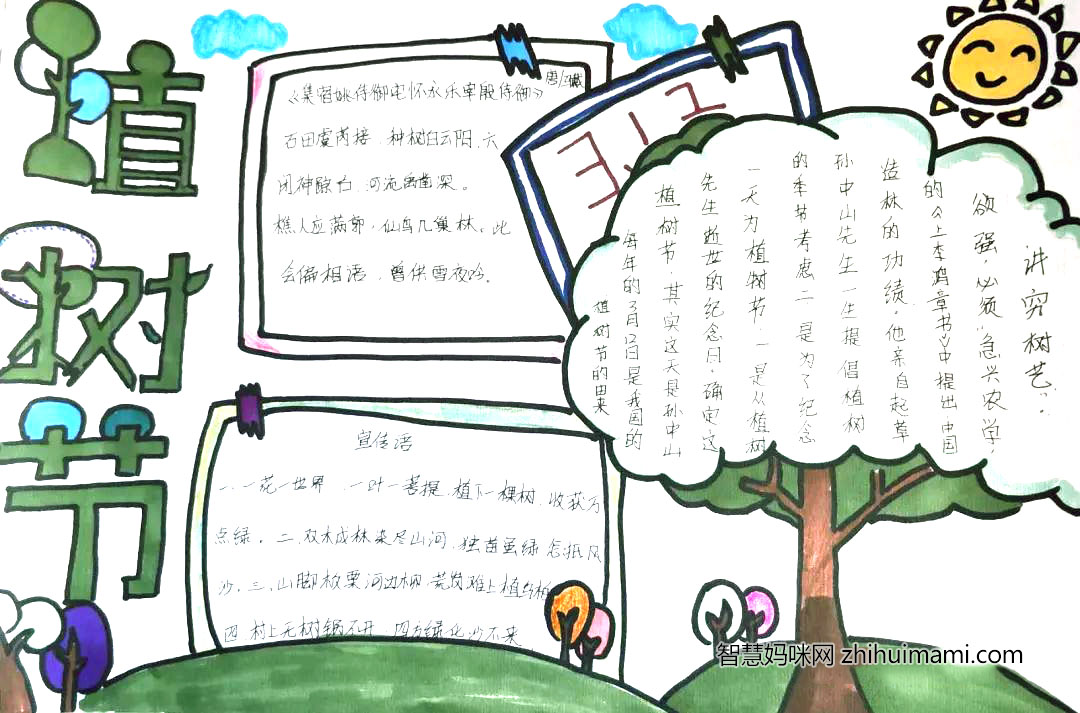 植树节
《集宿姚侍御宅怀永乐宰殷侍御》
唐/
石田虞芮接，种树白云阴。穴
闭神踪古，河流禹凿深。
樵人应满郭，仙鸟几巢林。此
会偏相语，曾供雪夜吟。
3.12
植树节的由来
每年的3月12日是我国的
植树节，其实这天是孙中山
先生逝世的纪念日，确定这
一天为植树节，一是从植树
的季节考虑二是为了纪念
孙中山先生一生提倡植树
造林的功绩，他亲自起草
的《上李鸿章书》中提出中国
欲强，必须“急兴农学，
讲究树艺”。
宣传语
一、一花一世界，一叶一菩提，植下一棵树，收获万
点绿。二、双木成林染尽山河，独苗虽绿怎抵风
沙。三、山脚板栗河边柳，荒岗难上植
四、村上无树锅不开，四方绿化沙不来
智慧妈咪网 zhihuimami.com